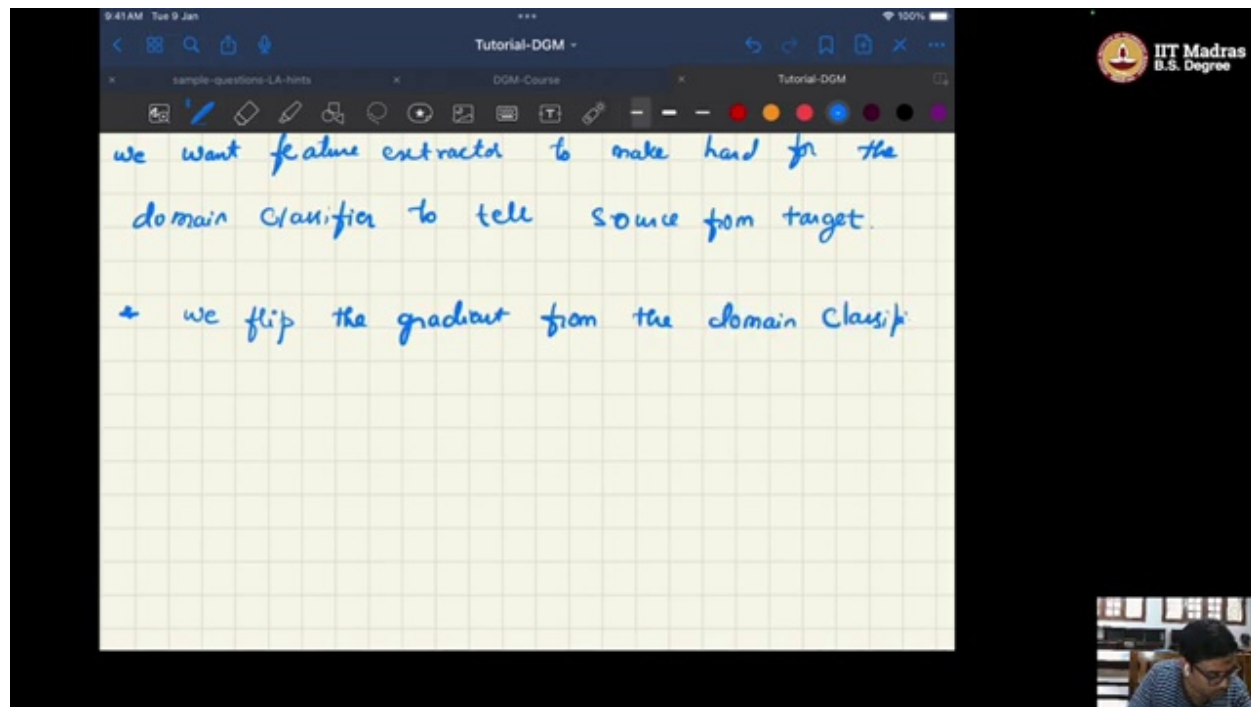 9:41 AM Tue 9 Jan
100%
Tutorial-DGM
sample-questions-LA-hints
DGM-Course
Tutorial-DGM
we want feature extractor to make hard for the
domain classifier to tell source from target.
* we flip the gradient from the domain Classifi
IIT Madras
B.S. Degree